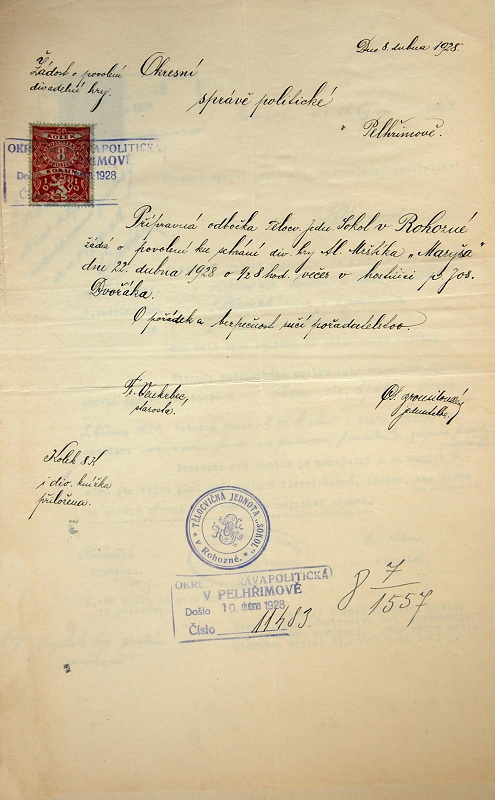 Dne 8. dubna 1928.
Žádost o povolení
divadelní hry.
Okresní
správě politické
v Pelhřimově.
KOLEK
8
KORUN
1919
OKRESNÍ SPRÁVA POLITICKÁ
V PELHŘIMOVĚ
Došlo dubna 1928
Přípravná odbočka Tělocv. Jedn. Sokol v Rohozné
žádá o povolení ku sehrání div. hry Al. Mrštíka „Maryša“
dne 22. dubna 1928 o ½8 hod. večer v hostinci p. Jos.
Dvořáka.
O pořádek a bezpečnost ručí pořadatelstvo.
Fr.
starosta.
jednatel.
Kolek 8 K
i div. knížka
přiložena.
TĚLOCVIČNÁ JEDNOTA „SOKOL“
v Rohozné.
OKRESNÍ SPRÁVA POLITICKÁ
V PELHŘIMOVĚ
Došlo 10. dubna 1928
Číslo 11483.
8 7/1557